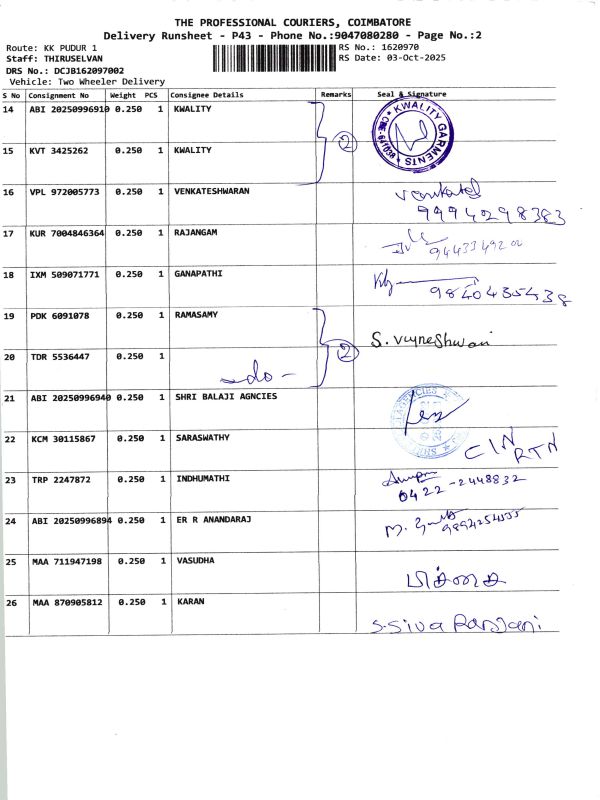 THE PROFESSIONAL COURIERS, COIMBATORE
Delivery Runsheet - P43 - Phone No.:9047080280 - Page No.:2
Route: KK PUDUR 1 RS No.: 1620970
Staff: THIRUSELVAN RS Date: 03-Oct-2025
DRS No.: DCJB162097002
Vehicle: Two Wheeler Delivery
S No Consignment No Weight PCS Consignee Details Remarks Seal & Signature
14 ABI 20250996910 0.250 1 KWALITY
KWALITY GARMENTS
2
15 KVT 3425262 0.250 1 KWALITY
16 VPL 972005773 0.250 1 VENKATESHWARAN
9994298383
17 KUR 7004846364 0.250 1 RAJANGAM
18 IXM 509071771 0.250 1 GANAPATHI
9840435438
19 PDK 6091078 0.250 1 RAMASAMY
2
20 TDR 5536447 0.250 1
-do-
21 ABI 20250996940 0.250 1 SHRI BALAJI AGNCIES
22 KCM 30115867 0.250 1 SARASWATHY C/N RTN
23 TRP 2247872 0.250 1 INDHUMATHI
0422-2448832
24 ABI 20250996894 0.250 1 ER R ANANDARAJ
25 MAA 711947198 0.250 1 VASUDHA
26 MAA 870905812 0.250 1 KARAN
S.Siva Ranjani